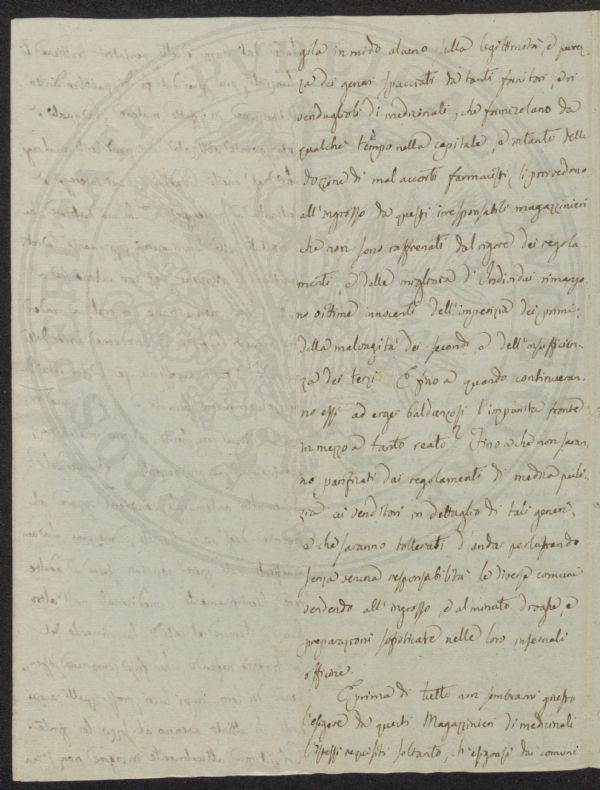 gola in modo alcuno sulla legittimità e purez-
za dei generi spacciati da tanti fornitori, e ri
vendugliuoli di medicinali, che formicolano da
qualche tempo nella capitale, e intanto delle
dozzine di mal accorti farmacisti si provvedono
all'ingrosso da questi irresponsabili magazzinieri
che non sono raffrenati dal rigore dei regola
menti, e delle migliaia d'Individui rimango
no vittime innocenti dell'imperizia dei primi
della malvagità dei secondi e dell'insufficien-
za dei terzi. E fino a quando continueran-
no essi ad erger baldanzosi l'impunita fronte
in mezzo a tanto reato? Fino a che non saran
no parificati dai regolamenti di medica puli-
zia ai venditori in dettaglio di tali generi,
e che saranno tollerati d'andar perlustrando
senza veruna responsabilità le diverse comuni
vendendo all'ingrosso, e al minuto droghe, e
preparazioni sofisticate nelle loro infernali
officine.
E prima di tutto non sembrami giusto
l'esigere da questi Magazzinieri di medicinali
l'istessi requisiti soltanto, ch'esigonsi dai comuni